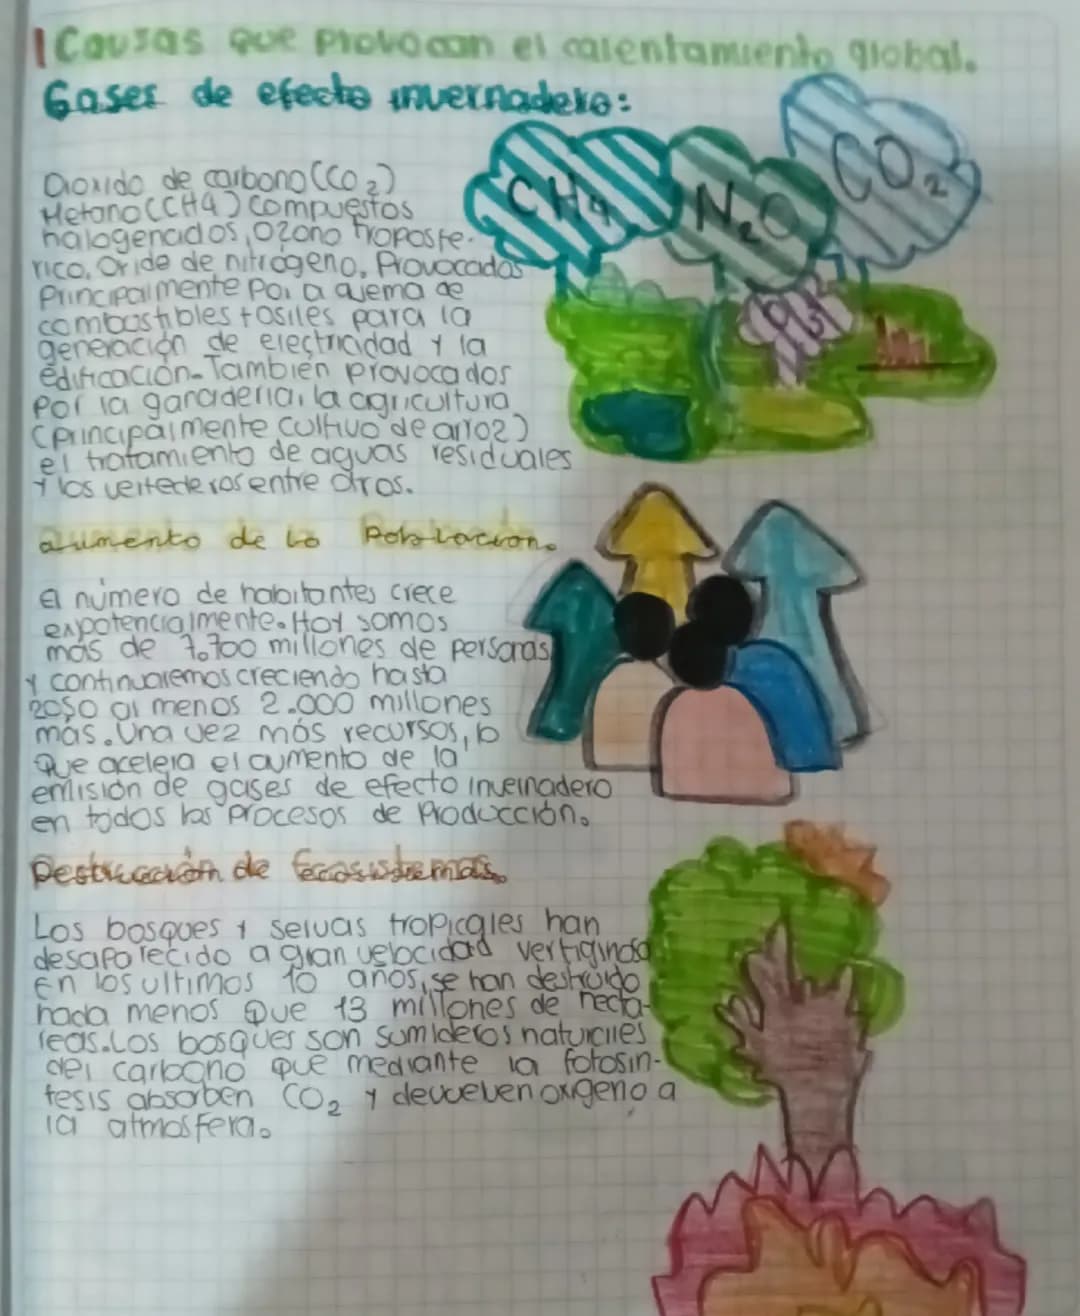 1 Causas que provocan el calentamiento global.
Gases de efecto invernadero:
CH4
N2O
CO2
Dioxido de carbono (CO2)
Metano (CH4) compuestos
halogenados, Ozono troposfe-
rico. Oxide de nitrógeno. Provocadas
principalmente por a quema de
combostibles fosiles para la
generación de electricidad y la
edificación. También provocados
por la ganaderia, la agricultura
(principalmente cultivo de arroz)
el tratamiento de aguas residuales
y los vertederos entre otros.
aumento de la Poblacion.
El número de habitantes crece
expotencialmente. Hoy somos
más de 7.700 millones de personas
y continuaremos creciendo hasta
2050 al menos 2.000 millones
más. Una vez más recursos, lo
que acelera el aumento de la
emisión de gases de efecto invernadero
en todos los procesos de Producción.
Destrucción de Ecosistemas.
Los bosques y selvas tropicales han
desaparecido a gran velocidad vertiginosa
En los ultimos 10 años, se han destruido
nada menos que 13 millones de hecta-
reas. Los bosques son sumideros naturales
del carbono que mediante la fotosin-
tesis absorben CO2 y devuelven oxigeno a
la atmosfera.